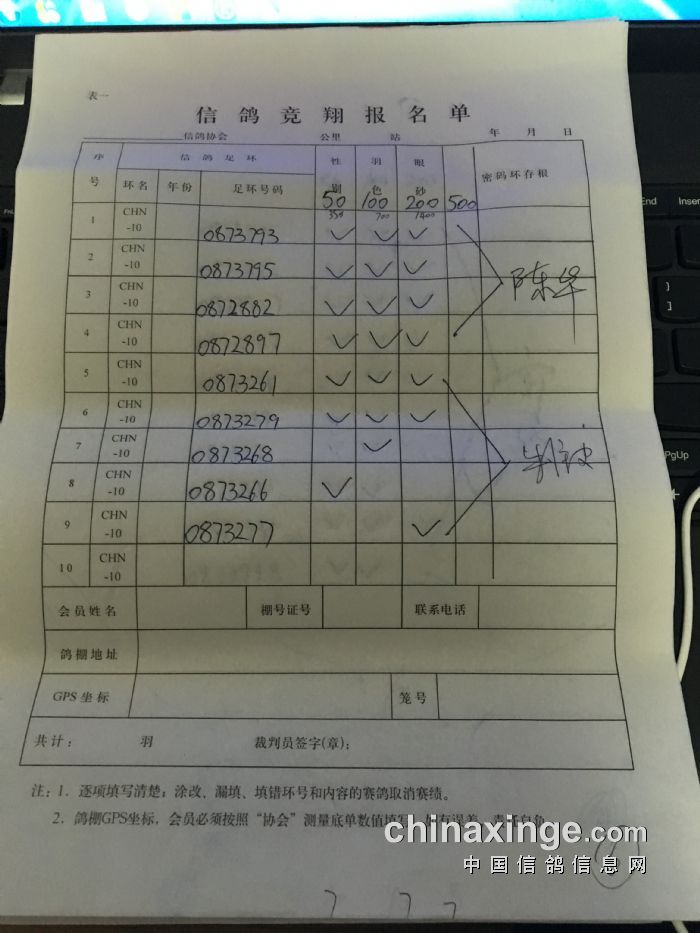 表一
信鸽竞翔报名单
信鸽协会 公里 站 年 月 日
序号 信鸽足环 性别 羽色 眼砂 密码环存根
环名 年份 足环号码 50 100 200 500
350 700 1400
1 CHN-10 0873793 ✓ ✓ ✓
2 CHN-10 0873795 ✓ ✓ ✓
3 CHN-10 0872882 ✓ ✓ ✓
陈华
4 CHN-10 0872897 ✓ ✓ ✓
5 CHN-10 0873261 ✓ ✓ ✓
6 CHN-10 0873279 ✓ ✓ ✓
7 CHN-10 0873268 ✓
8 CHN-10 0873266 ✓
9 CHN-10 0873277 ✓
10 CHN-10
会员姓名 棚号证号 联系电话
鸽棚地址
GPS坐标 笼号
共计: 羽 裁判员签字(章);
注:1. 逐项填写清楚;涂改、漏填、填错环号和内容的赛鸽取消赛绩。
2. 鸽棚GPS坐标,会员必须按照“协会”测量底单数值填写,如有误差,责任自负
chinaxinge.com
中国信鸽信息网
End Insert
PgUp